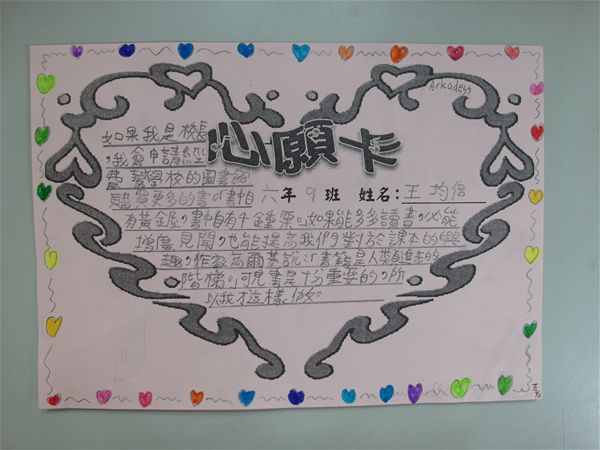 Arkadess
心願卡
六年9班 姓名:王均信
如果我是校長
,我會申請經
費,替學校的圖書館
購買更多的書。「書中自
有黃金屋,書中自有千鍾粟。」如果能多多讀書,必能
增廣見聞,也能提高我們對於課本的興
趣。作家高爾基說:「書籍是人類進步的
階梯。」可見書是十分重要的,所
以我才這樣做。